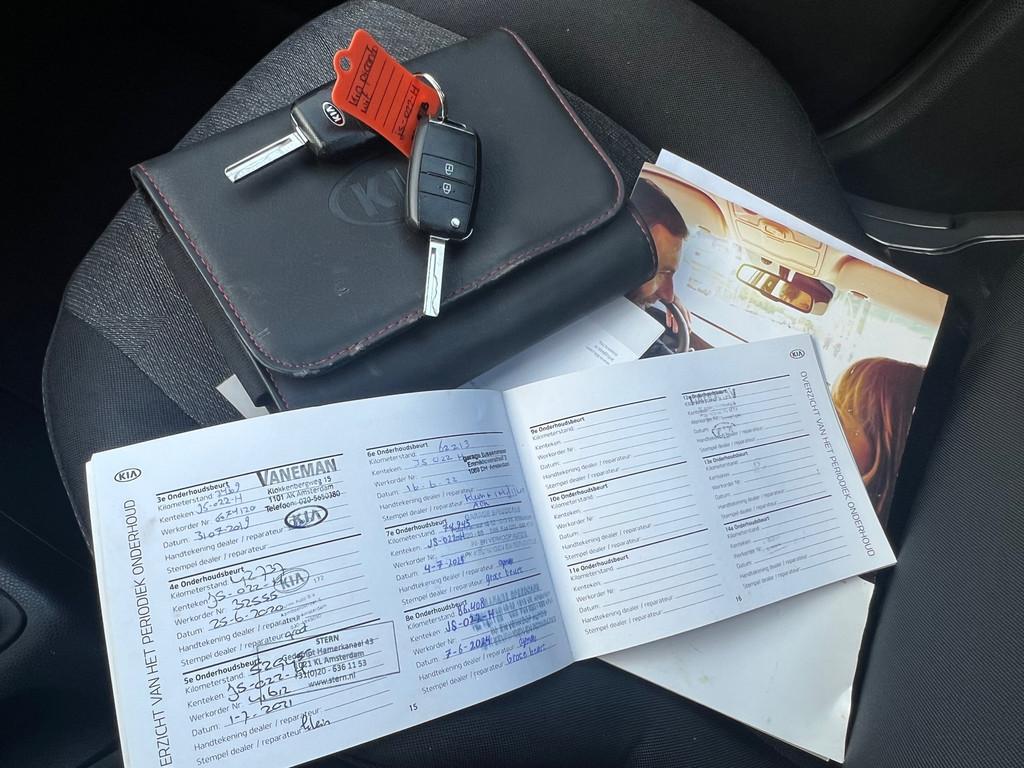 Kia picanto
JS-022-H
KIA
KIA
KIA
OVERZICHT VAN HET PERIODIEK ONDERHOUD
3e Onderhoudsbeurt
Kilometerstand:
Kenteken: JS-022-H
Werkorder Nr: 6574120
Datum: 31-07-2019
Handtekening dealer / reparateur:
Stempel dealer / reparateur:
VANEMAN
Klokkenbergweg 15
1101 AK Amsterdam
KIA
4e Onderhoudsbeurt
Kilometerstand: 42737
Kenteken: JS-022-H
Werkorder Nr: 32555
Datum: 25-6-2020
Handtekening dealer / reparateur:
Stempel dealer / reparateur: groot
KIA
5e Onderhoudsbeurt
Kilometerstand:
Kenteken: JS-022-H
Werkorder Nr: 41612
Datum: 1-7-2021
Handtekening dealer / reparateur:
Stempel dealer / reparateur: klein
STERN
Hamerkanaal 43
1021 KL Amsterdam
+31(0)20 - 636 11 53
www.stern.nl
6e Onderhoudsbeurt
Kilometerstand: 62213
Kenteken: JS-022-H
Werkorder Nr:
Datum: 16-6-22
Handtekening dealer / reparateur:
Stempel dealer / reparateur:
7e Onderhoudsbeurt
Kilometerstand: 74945
Kenteken: JS-022-H
Werkorder Nr:
Datum:
Handtekening dealer / reparateur:
Stempel dealer / reparateur: grote beurt
8e Onderhoudsbeurt
Kilometerstand: 86.408
Kenteken: JS-022-H
Werkorder Nr:
Datum: 7-6-2024
Handtekening dealer / reparateur:
Stempel dealer / reparateur: Grote beurt
15
9e Onderhoudsbeurt
Kilometerstand:
Kenteken:
Werkorder Nr:
Datum:
Handtekening dealer / reparateur:
Stempel dealer / reparateur:
10e Onderhoudsbeurt
Kilometerstand:
Kenteken:
Werkorder Nr:
Datum:
Handtekening dealer / reparateur:
Stempel dealer / reparateur:
11e Onderhoudsbeurt
Kilometerstand:
Kenteken:
Werkorder Nr:
Datum:
Handtekening dealer / reparateur:
Stempel dealer / reparateur:
12e Onderhoudsbeurt
Kilometerstand:
Kenteken:
Werkorder Nr:
Datum:
Handtekening dealer / reparateur:
Stempel dealer / reparateur:
13e Onderhoudsbeurt
Kilometerstand:
Kenteken:
Werkorder Nr:
Datum:
Handtekening dealer / reparateur:
Stempel dealer / reparateur:
14e Onderhoudsbeurt
Kilometerstand:
Kenteken:
Werkorder Nr:
Datum:
Handtekening dealer / reparateur:
Stempel dealer / reparateur:
16
KIA
OVERZICHT VAN HET PERIODIEK ONDERHOUD